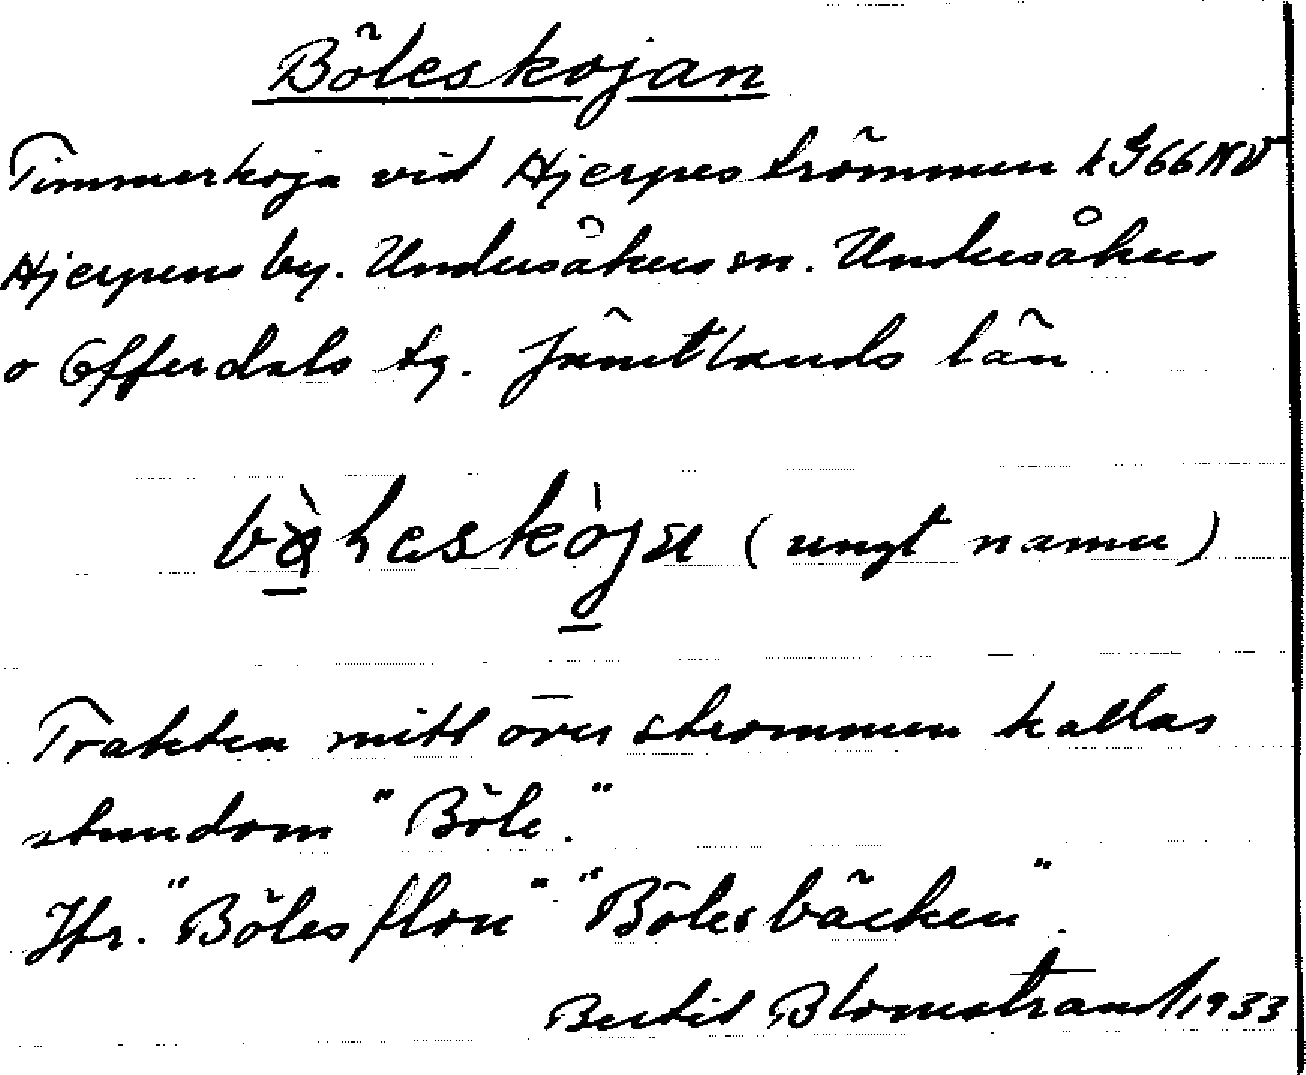 Böleskojan
Timmerkoja vid Hjerpeströmmen k G66NV
Hjerpens by. Undersåkers sn. Undersåkers
o Offerdals tg. Jämtlands län
(ungt namn)
Trakten mitt över strömmen kallas
stundom "Böle".
Jfr. "Bölesflon" "Bölesbäcken".
Bertil Blomstrand 1933